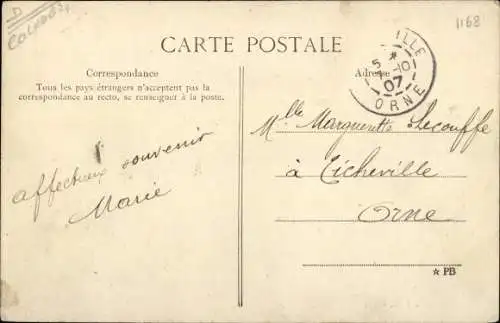 D
CALVADOS
1168
CARTE POSTALE
Correspondance
Tous les pays étrangers n'acceptent pas la
correspondance au recto, se renseigner à la poste.
Affectueux souvenir
Marie
Adresse
VILLE
5 * 10
07
ORNE
Mlle Marguerite Lecouffe
à Ticheville
Orne
☆ PB